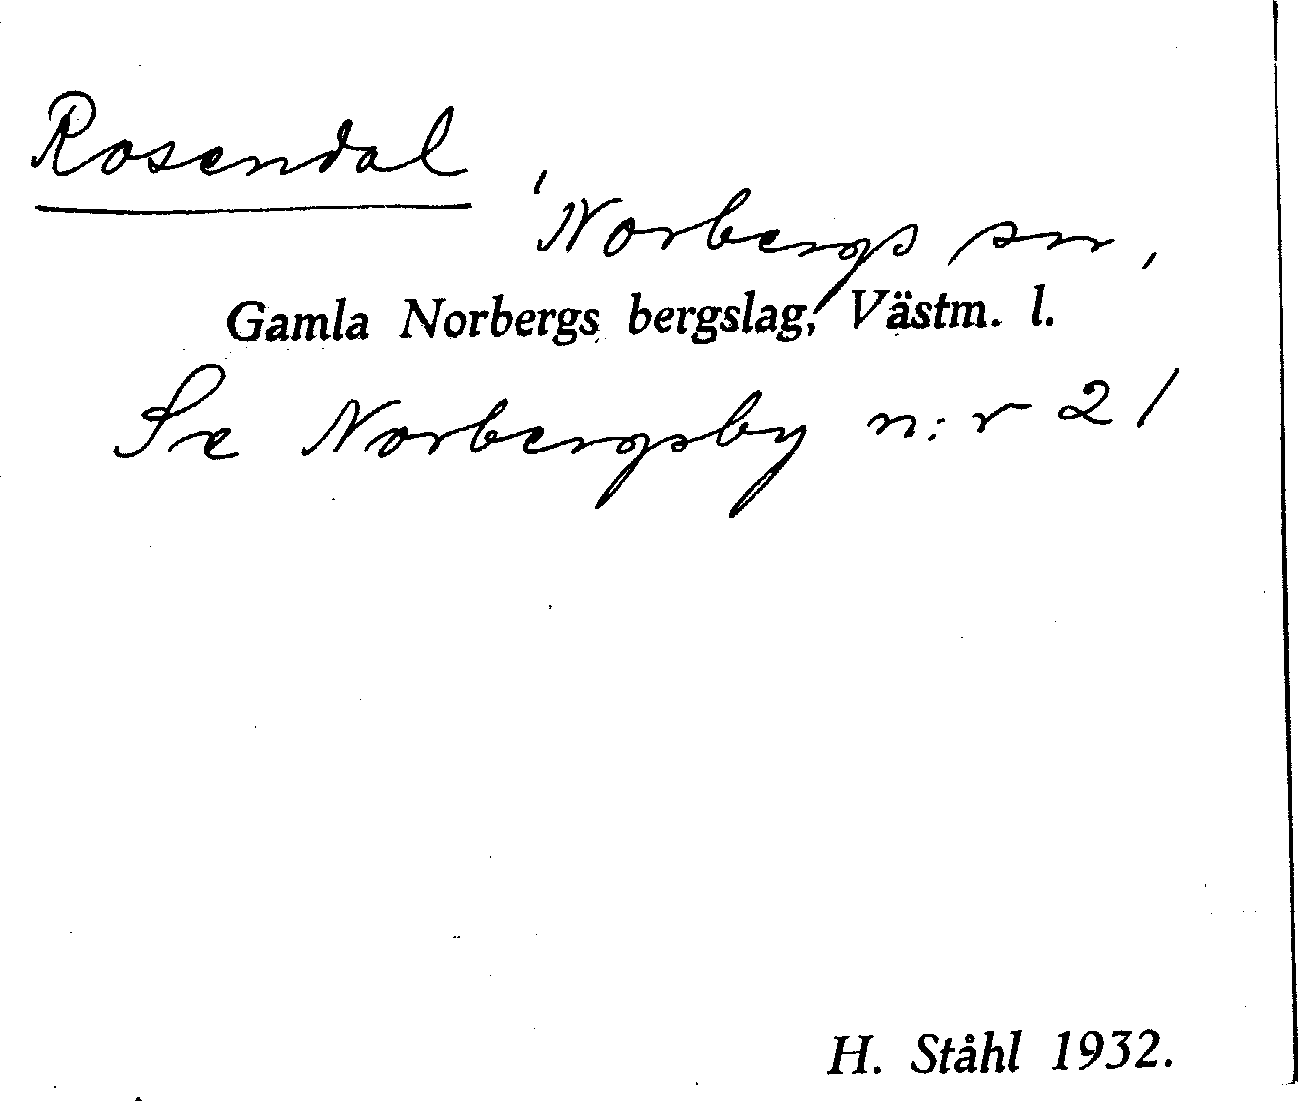 Rosendal,
Norbergs sn,
Gamla Norbergs bergslag, Västm. l.
Se Norbergsby n:r 21
H. Ståhl 1932.